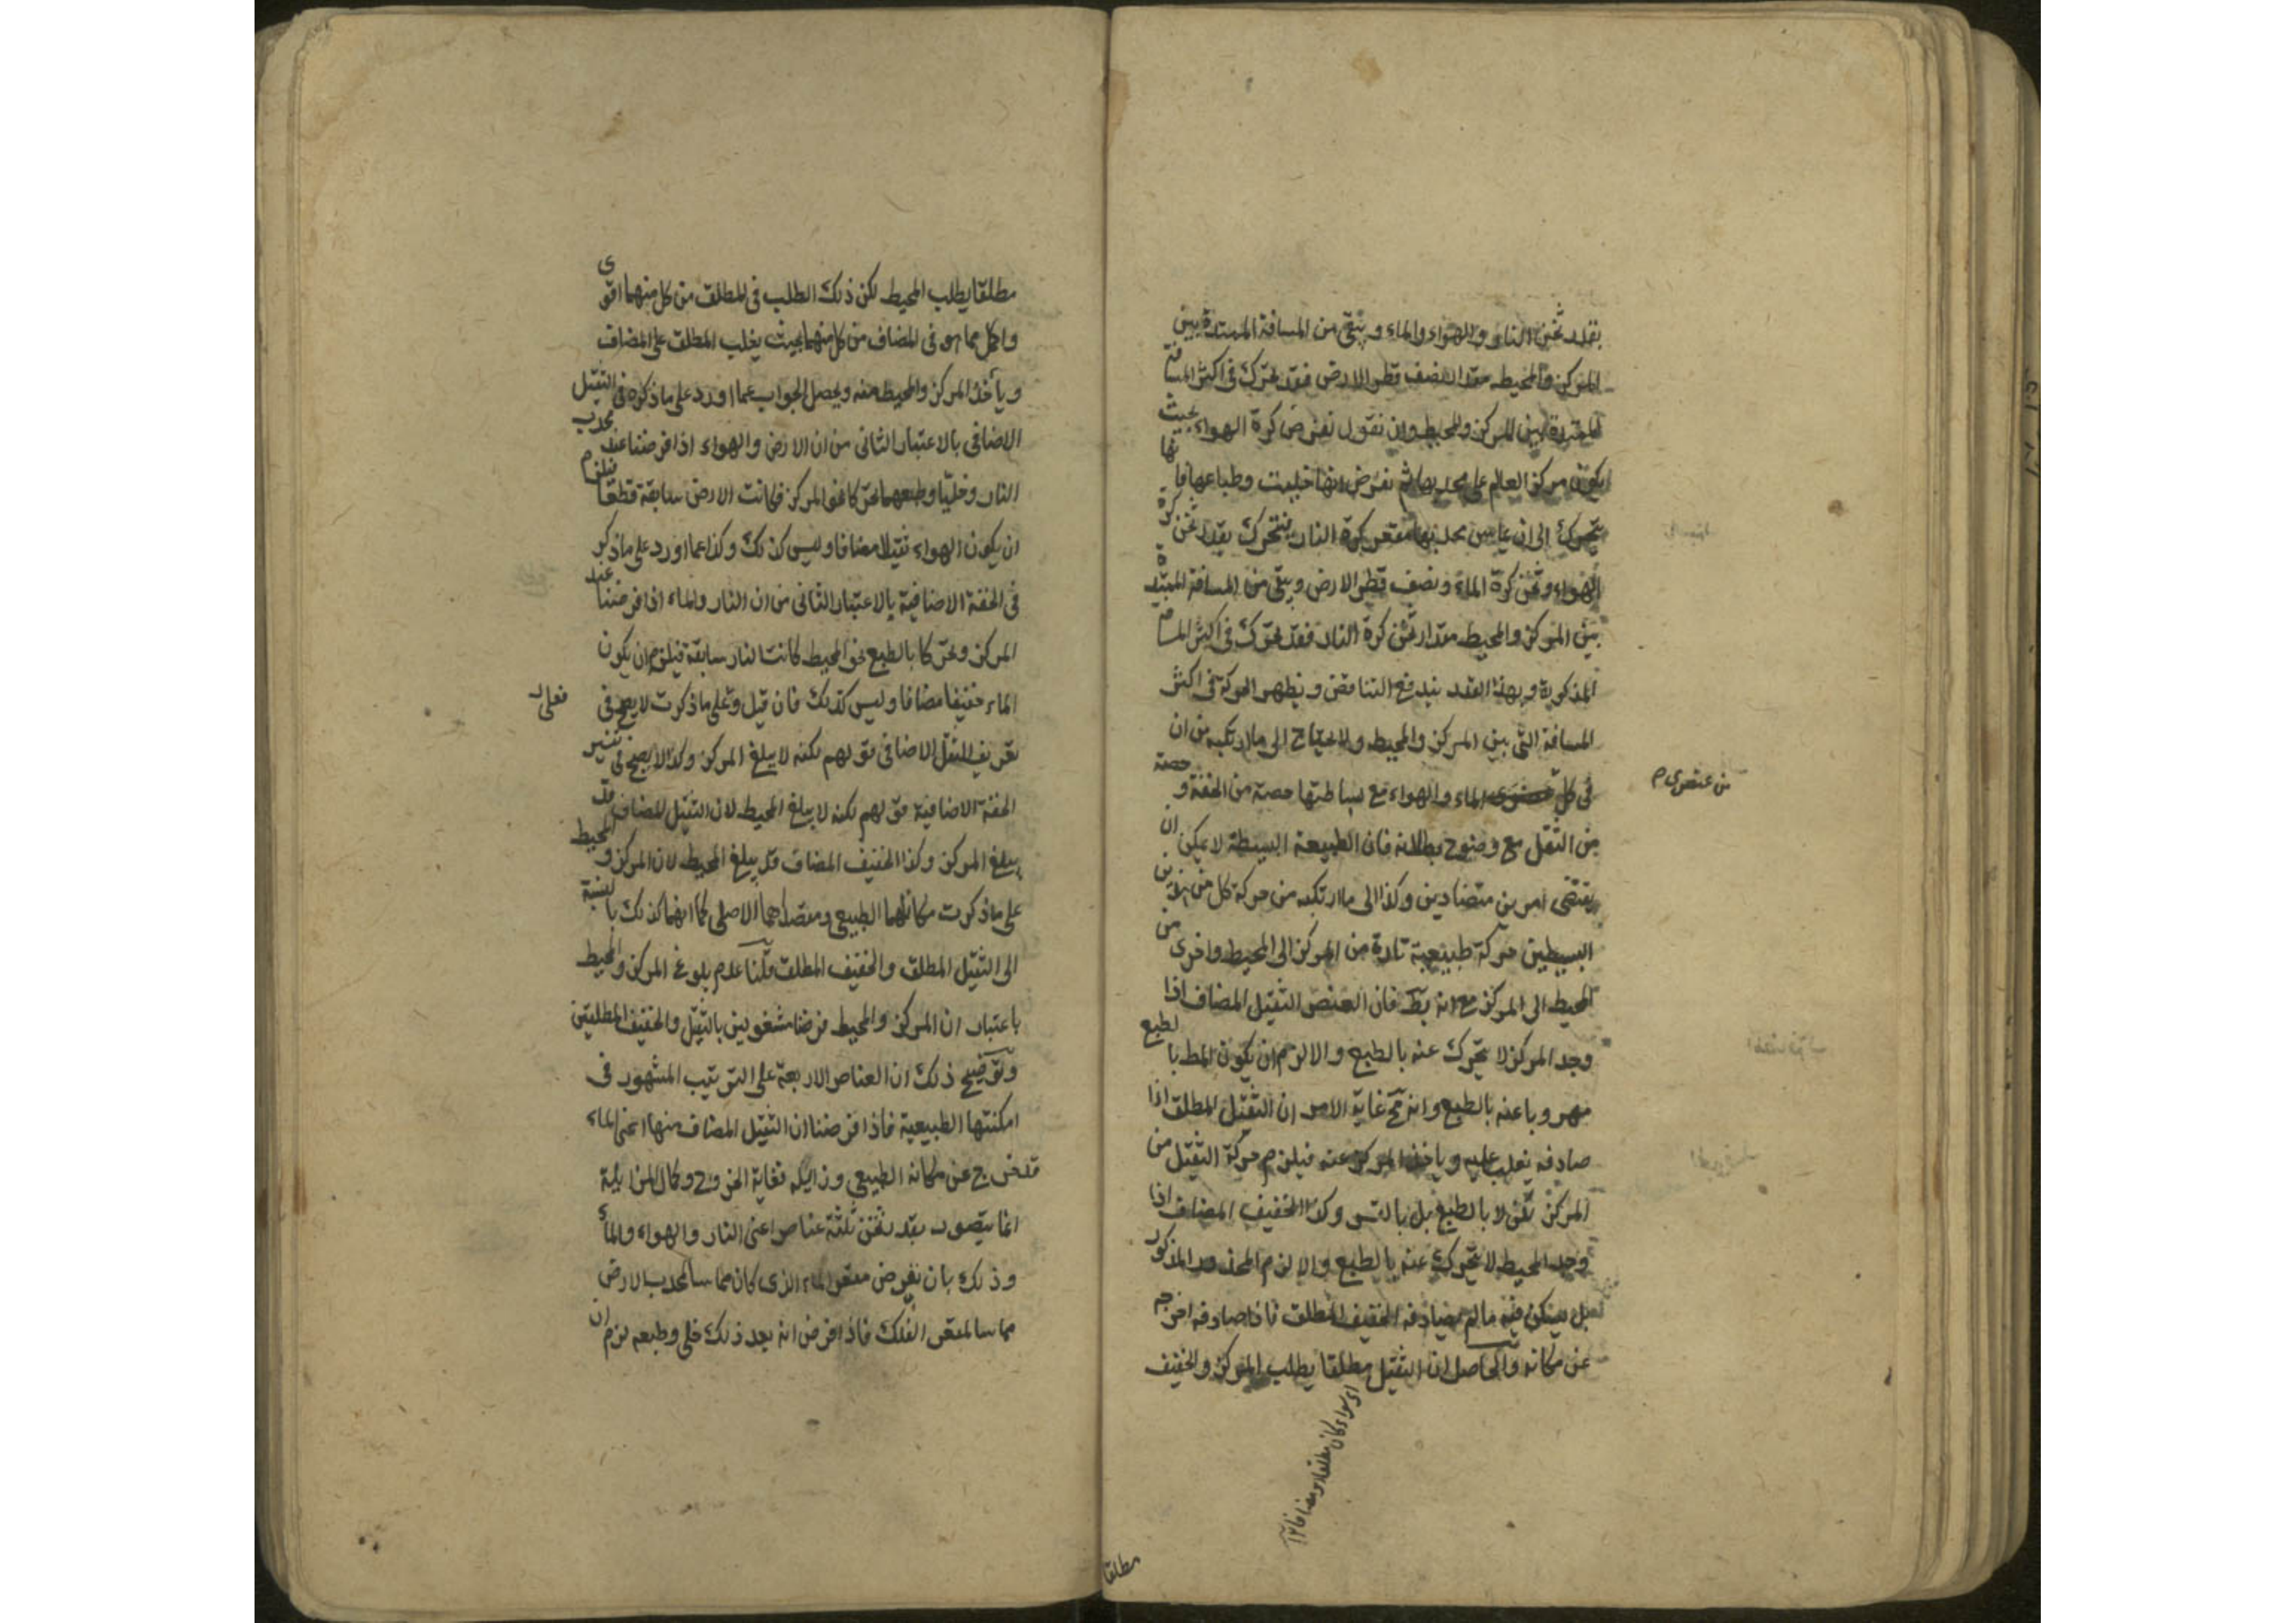 بقدر ثخن النار والهواء والماء ويبقى من المسافة الممتدة بين
المركز والمحيط مقدار نصف قطر الارض فقد تحرك فى اكثر المسافة
الممتدة بين المركز والمحيط وان نقول نفرض كرة الهواء بحيث
يكون مركز العالم على محدبها ثم نفرض انها خليت وطباعها فانها
تتحرك الى ان يماس محدبها مقعر كرة النار فتتحرك بقدر ثخن كرة
الهواء وثخن كرة الماء ونصف قطر الارض ويبقى من المسافة الممتدة
بين المركز والمحيط مقدار ثخن كرة النار فقد تحرك فى اكثر المسافة
المذكورة وبهذا القدر يندفع التناقض ويظهر الحركة فى اكثر
المسافة التى بين المركز والمحيط ولا يحتاج الى ما ارتكبه من ان
فى كل الماء والهواء مع بساطتها حصة من الخفة وحصة
من عنصرى م
من الثقل مع وضوح بطلانه فان الطبيعة البسيطة لا يمكن ان
يقتضى امرين متضادين وكذا الى ما ارتكبه من حركة كل من هذين
البسيطين حركة طبيعية تارة من المركز الى المحيط واخرى من
المحيط الى المركز مع انه بط فان العنصر الثقيل المضاف اذا
وجد المركز لا يتحرك عنه بالطبع والا لزم ان يكون المط بالطبع
مهروبا عنه بالطبع وانه مح غاية الامر ان الثقيل المطلق اذا
صادفه يغلب عليه وياخذ المركز عنه فيلزم حركة الثقيل من
المركز لا بالطبع بل بالقسر وكذا الخفيف المضاف اذا
وجد المحيط لا يتحرك عنه بالطبع والا لزم المحذور المذكور
بل يسكن فيه ما لم يصادفه الخفيف المطلق فاذا صادفه اخرجه
عن مكانه والحاصل ان الثقيل مطلقا يطلب المركز والخفيف
اى سواء كان مطلقا او مضافا
مطلقا
مطلقا يطلب المحيط لكن ذلك الطلب فى المطلق من كل منهما اقوى
واكمل مما هو فى المضاف من كل منهما بحيث يغلب المطلق على المضاف
ويأخذ المركز والمحيط منه ويحصل الجواب عما اورد على ما ذكره فى الثقيل
الاضافى بالاعتبار الثانى من ان الارض والهواء اذا فرضنا عند محدب
النار وخليا وطبعهما تحركا نحو المركز فكانت الارض سابقة قطعا فيلزم
ان يكون الهواء ثقيلا مضافا وليس كذلك وكذا عما اورد على ما ذكر
فى الخفة الاضافية بالاعتبار الثانى من ان النار والماء اذا فرضنا عند
المركز وتحركا بالطبع نحو المحيط كانت النار سابقة فيلزم ان يكون
الماء خفيفا مضافا وليس كذلك فان قيل وعلى ما ذكرت لا يصح فى
فعلى
تعريف الثقل الاضافى قولهم لكنه لا يبلغ المركز وكذا لا يصح فى تفسير
الخفة الاضافية قولهم لكنه لا يبلغ المحيط لان الثقيل المضاف قد
يبلغ المركز وكذا الخفيف المضاف قد يبلغ المحيط لان المركز والمحيط
على ما ذكرت مكانهما الطبيعى ومقصدهما الاصلى كما انهما كذلك بالنسبة
الى الثقيل المطلق والخفيف المطلق قلنا عدم بلوغ المركز والمحيط
باعتبار ان المركز والمحيط فرضا مشغولين بالثقيل والخفيف المطلقين
وتوضيح ذلك ان العناصر الاربعة على الترتيب المشهور فى
امكنتها الطبيعية فاذا فرضنا ان الثقيل المضاف منها اعنى الماء
قد خرج عن مكانه الطبيعى وزايله فغاية الخروج وكمال المزايلة
انما يتصور بقدر ثخن ثلثة عناصر اعنى النار والهواء والماء
وذلك بان نفرض مقعر الماء الذى كان مماسا لمحدب الارض
مماسا لمقعر الفلك فاذا فرض انه بعد ذلك خلى وطبعه لزم ان